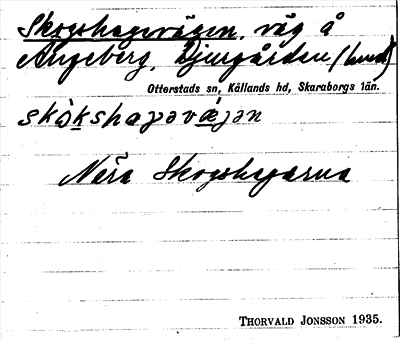 Skogshagevägen, väg å
Ängeberg, Djurgården (lund)
Otterstads sn, Kållands hd, Skaraborgs län.
skò̀kshaɡəvæ̀ɡən
Nära Skogshagarna
THORVALD JONSSON 1935.